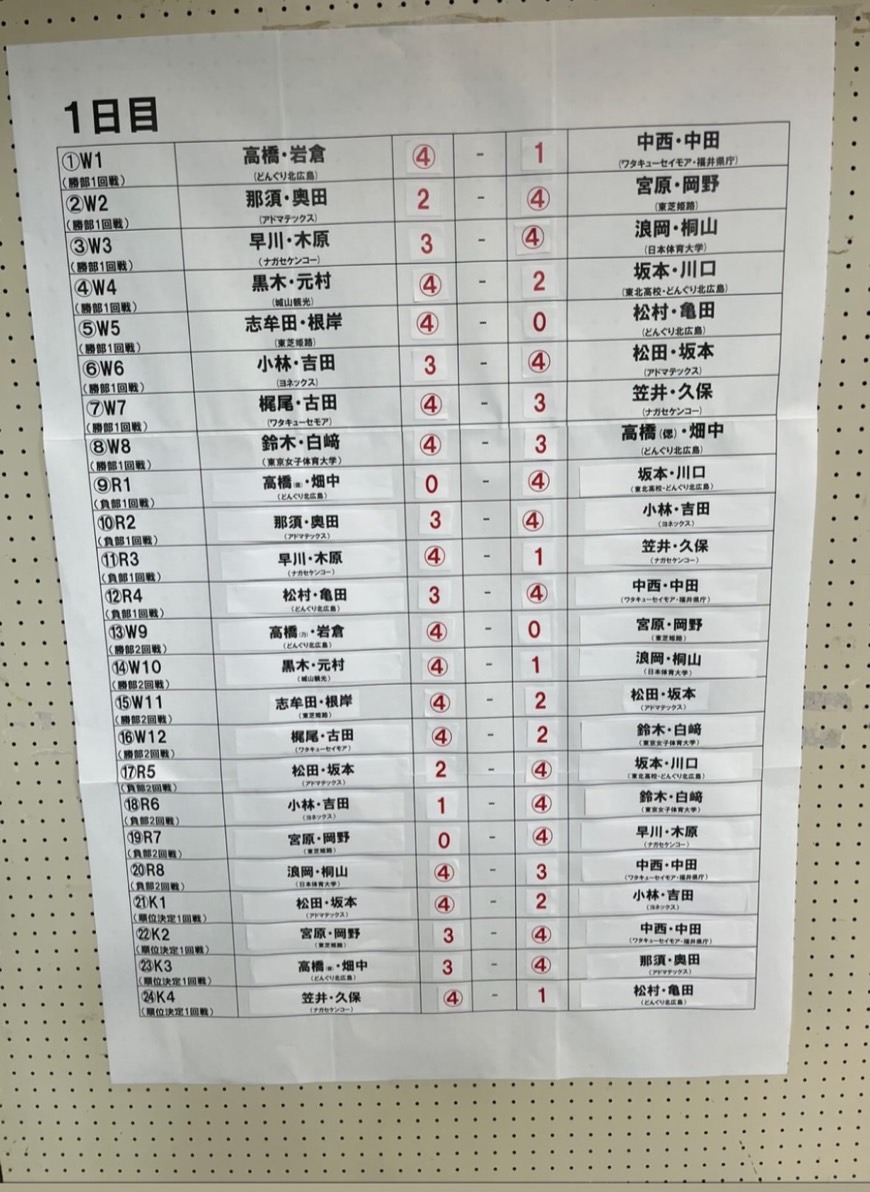 1日目
①W1 高橋・岩倉 ④ - 1 中西・中田
(勝部1回戦) (どんぐり北広島) (ワタキューセイモア・福井県庁)
②W2 那須・奥田 2 - ④ 宮原・岡野
(勝部1回戦) (アドマテックス) (東芝姫路)
③W3 早川・木原 3 - ④ 浪岡・桐山
(勝部1回戦) (ナガセケンコー) (日本体育大学)
④W4 黒木・元村 ④ - 2 坂本・川口
(勝部1回戦) (城山観光) (東北高校・どんぐり北広島)
⑤W5 志牟田・根岸 ④ - 0 松村・亀田
(勝部1回戦) (東芝姫路) (どんぐり北広島)
⑥W6 小林・吉田 3 - ④ 松田・坂本
(勝部1回戦) (ヨネックス) (アドマテックス)
⑦W7 梶尾・古田 ④ - 3 笠井・久保
(勝部1回戦) (ワタキューセモア) (ナガセケンコー)
⑧W8 鈴木・白﨑 ④ - 3 高橋(偲)・畑中
(勝部1回戦) (東京女子体育大学) (どんぐり北広島)
⑨R1 高橋(偲)・畑中 0 - ④ 坂本・川口
(負部1回戦) (どんぐり北広島) (東北高校・どんぐり北広島)
⑩R2 那須・奥田 3 - ④ 小林・吉田
(負部1回戦) (アドマテックス) (ヨネックス)
⑪R3 早川・木原 ④ - 1 笠井・久保
(負部1回戦) (ナガセケンコー) (ナガセケンコー)
⑫R4 松村・亀田 3 - ④ 中西・中田
(負部1回戦) (どんぐり北広島) (ワタキューセイモア・福井県庁)
⑬W9 高橋(乃)・岩倉 ④ - 0 宮原・岡野
(勝部2回戦) (どんぐり北広島) (東芝姫路)
⑭W10 黒木・元村 ④ - 1 浪岡・桐山
(勝部2回戦) (城山観光) (日本体育大学)
⑮W11 志牟田・根岸 ④ - 2 松田・坂本
(勝部2回戦) (東芝姫路) (アドマテックス)
⑯W12 梶尾・古田 ④ - 2 鈴木・白﨑
(勝部2回戦) (ワタキューセイモア) (東京女子体育大学)
⑰R5 松田・坂本 2 - ④ 坂本・川口
(負部2回戦) (アドマテックス) (東北高校・どんぐり北広島)
⑱R6 小林・吉田 1 - ④ 鈴木・白﨑
(負部2回戦) (ヨネックス) (東京女子体育大学)
⑲R7 宮原・岡野 0 - ④ 早川・木原
(負部2回戦) (東芝姫路) (ナガセケンコー)
⑳R8 浪岡・桐山 ④ - 3 中西・中田
(負部2回戦) (日本体育大学) (ワタキューセイモア・福井県庁)
㉑K1 松田・坂本 ④ - 2 小林・吉田
(順位決定1回戦) (アドマテックス) (ヨネックス)
㉒K2 宮原・岡野 3 - ④ 中西・中田
(順位決定1回戦) (東芝姫路) (ワタキューセイモア・福井県庁)
㉓K3 高橋(偲)・畑中 3 - ④ 那須・奥田
(順位決定1回戦) (どんぐり北広島) (アドマテックス)
㉔K4 笠井・久保 ④ - 1 松村・亀田
(順位決定1回戦) (ナガセケンコー) (どんぐり北広島)